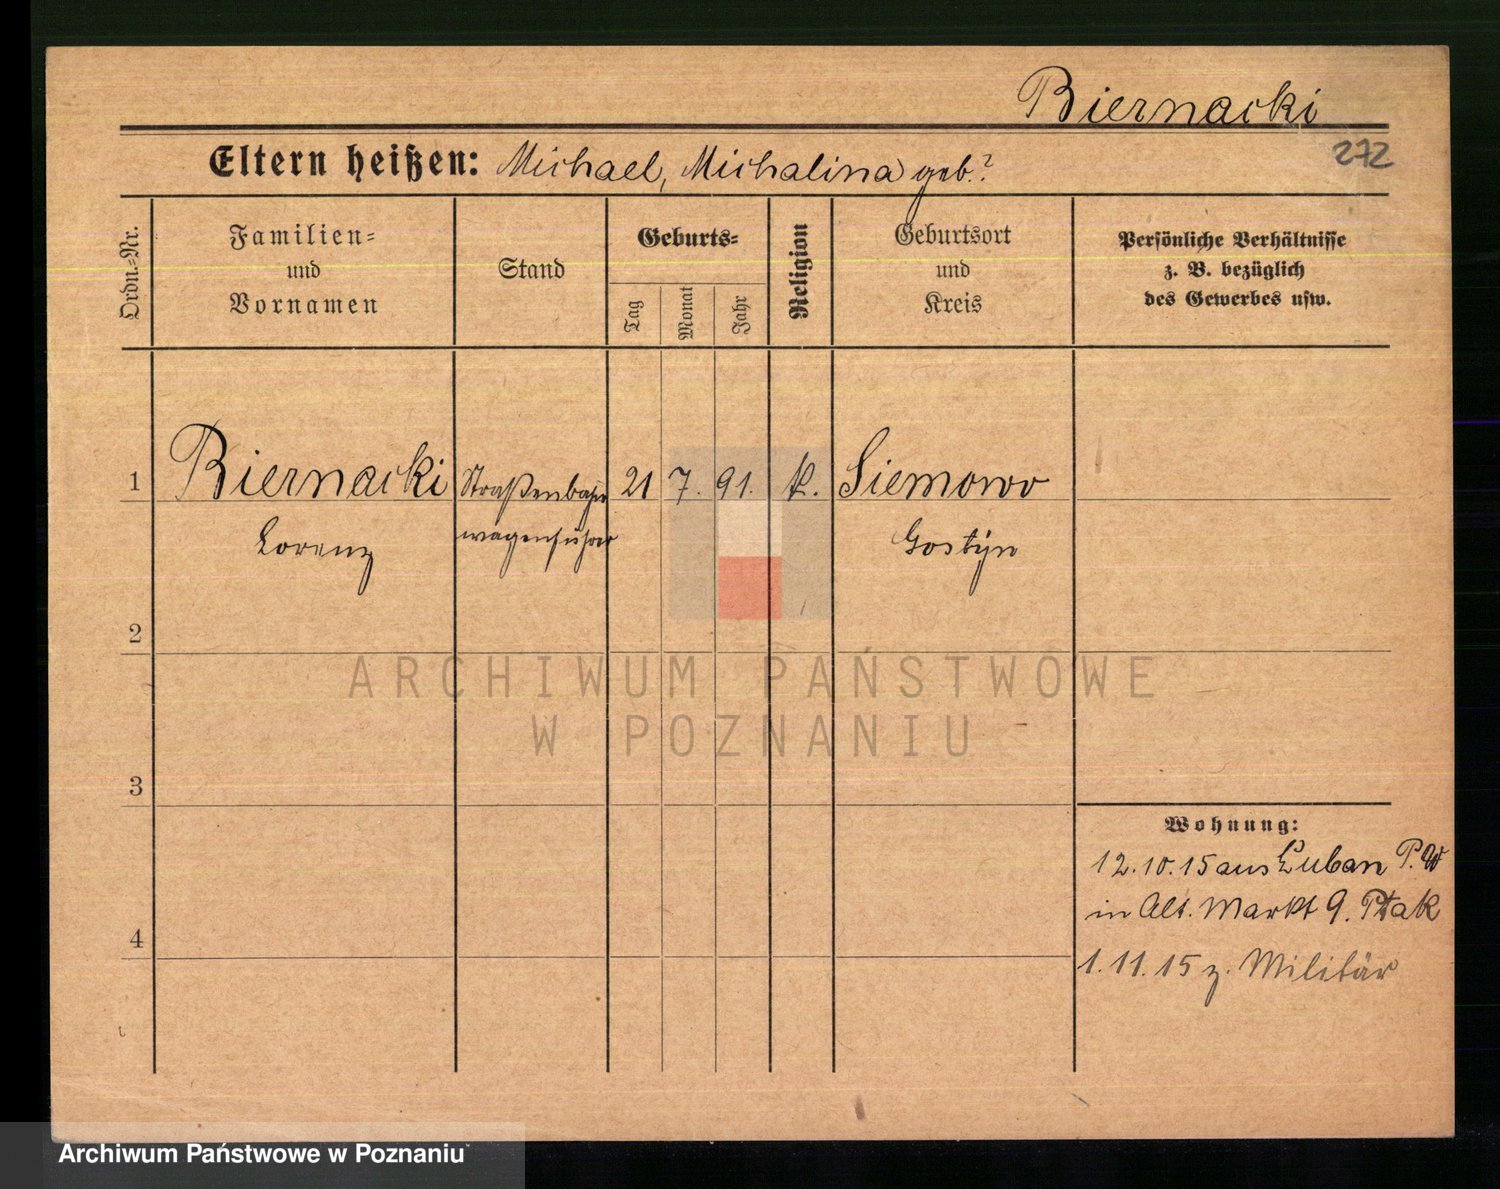 Biernacki
Eltern heißen: Michael, Michalina geb.?
272
Ordn.-Nr.
Familien-
und
Vornamen
Stand
Geburts-
Tag
Monat
Jahr
Religion
Geburtsort
und
Kreis
Persönliche Verhältnisse
z. B. bezüglich
des Gewerbes usw.
1 Biernacki Straßenbahn 21 7. 91. k. Siemowo
Lorenz wagenführer Gostyn
2
3
4
Wohnung:
12.10.15 aus Luban P.W
in Alt. Markt 9. Ptak
1.11.15 z. Militär
ARCHIWUM PAŃSTWOWE
W POZNANIU
Archiwum Państwowe w Poznaniu